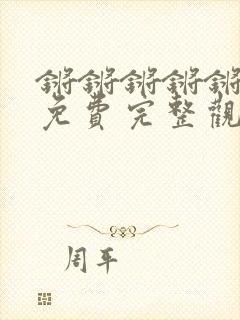 锵锵锵锵锵
免費完整觀
周平